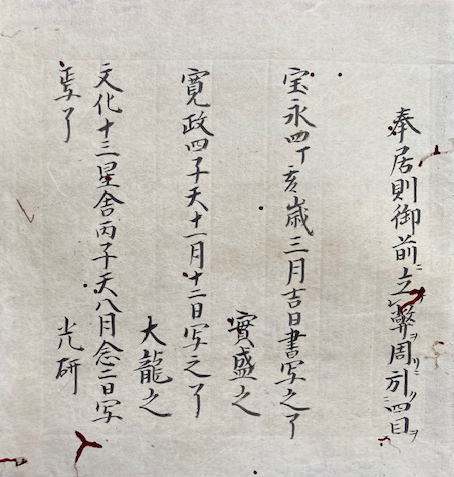 奉居則御前ニ立レ弊ヲ周リ引ノ四目ヲ
宝永四丁亥歳三月吉日書写之了
實盛之
寛政四子天十一月十二日写之了
大龍之
文化十三星舎丙子天八月念二日写
焉了
光研